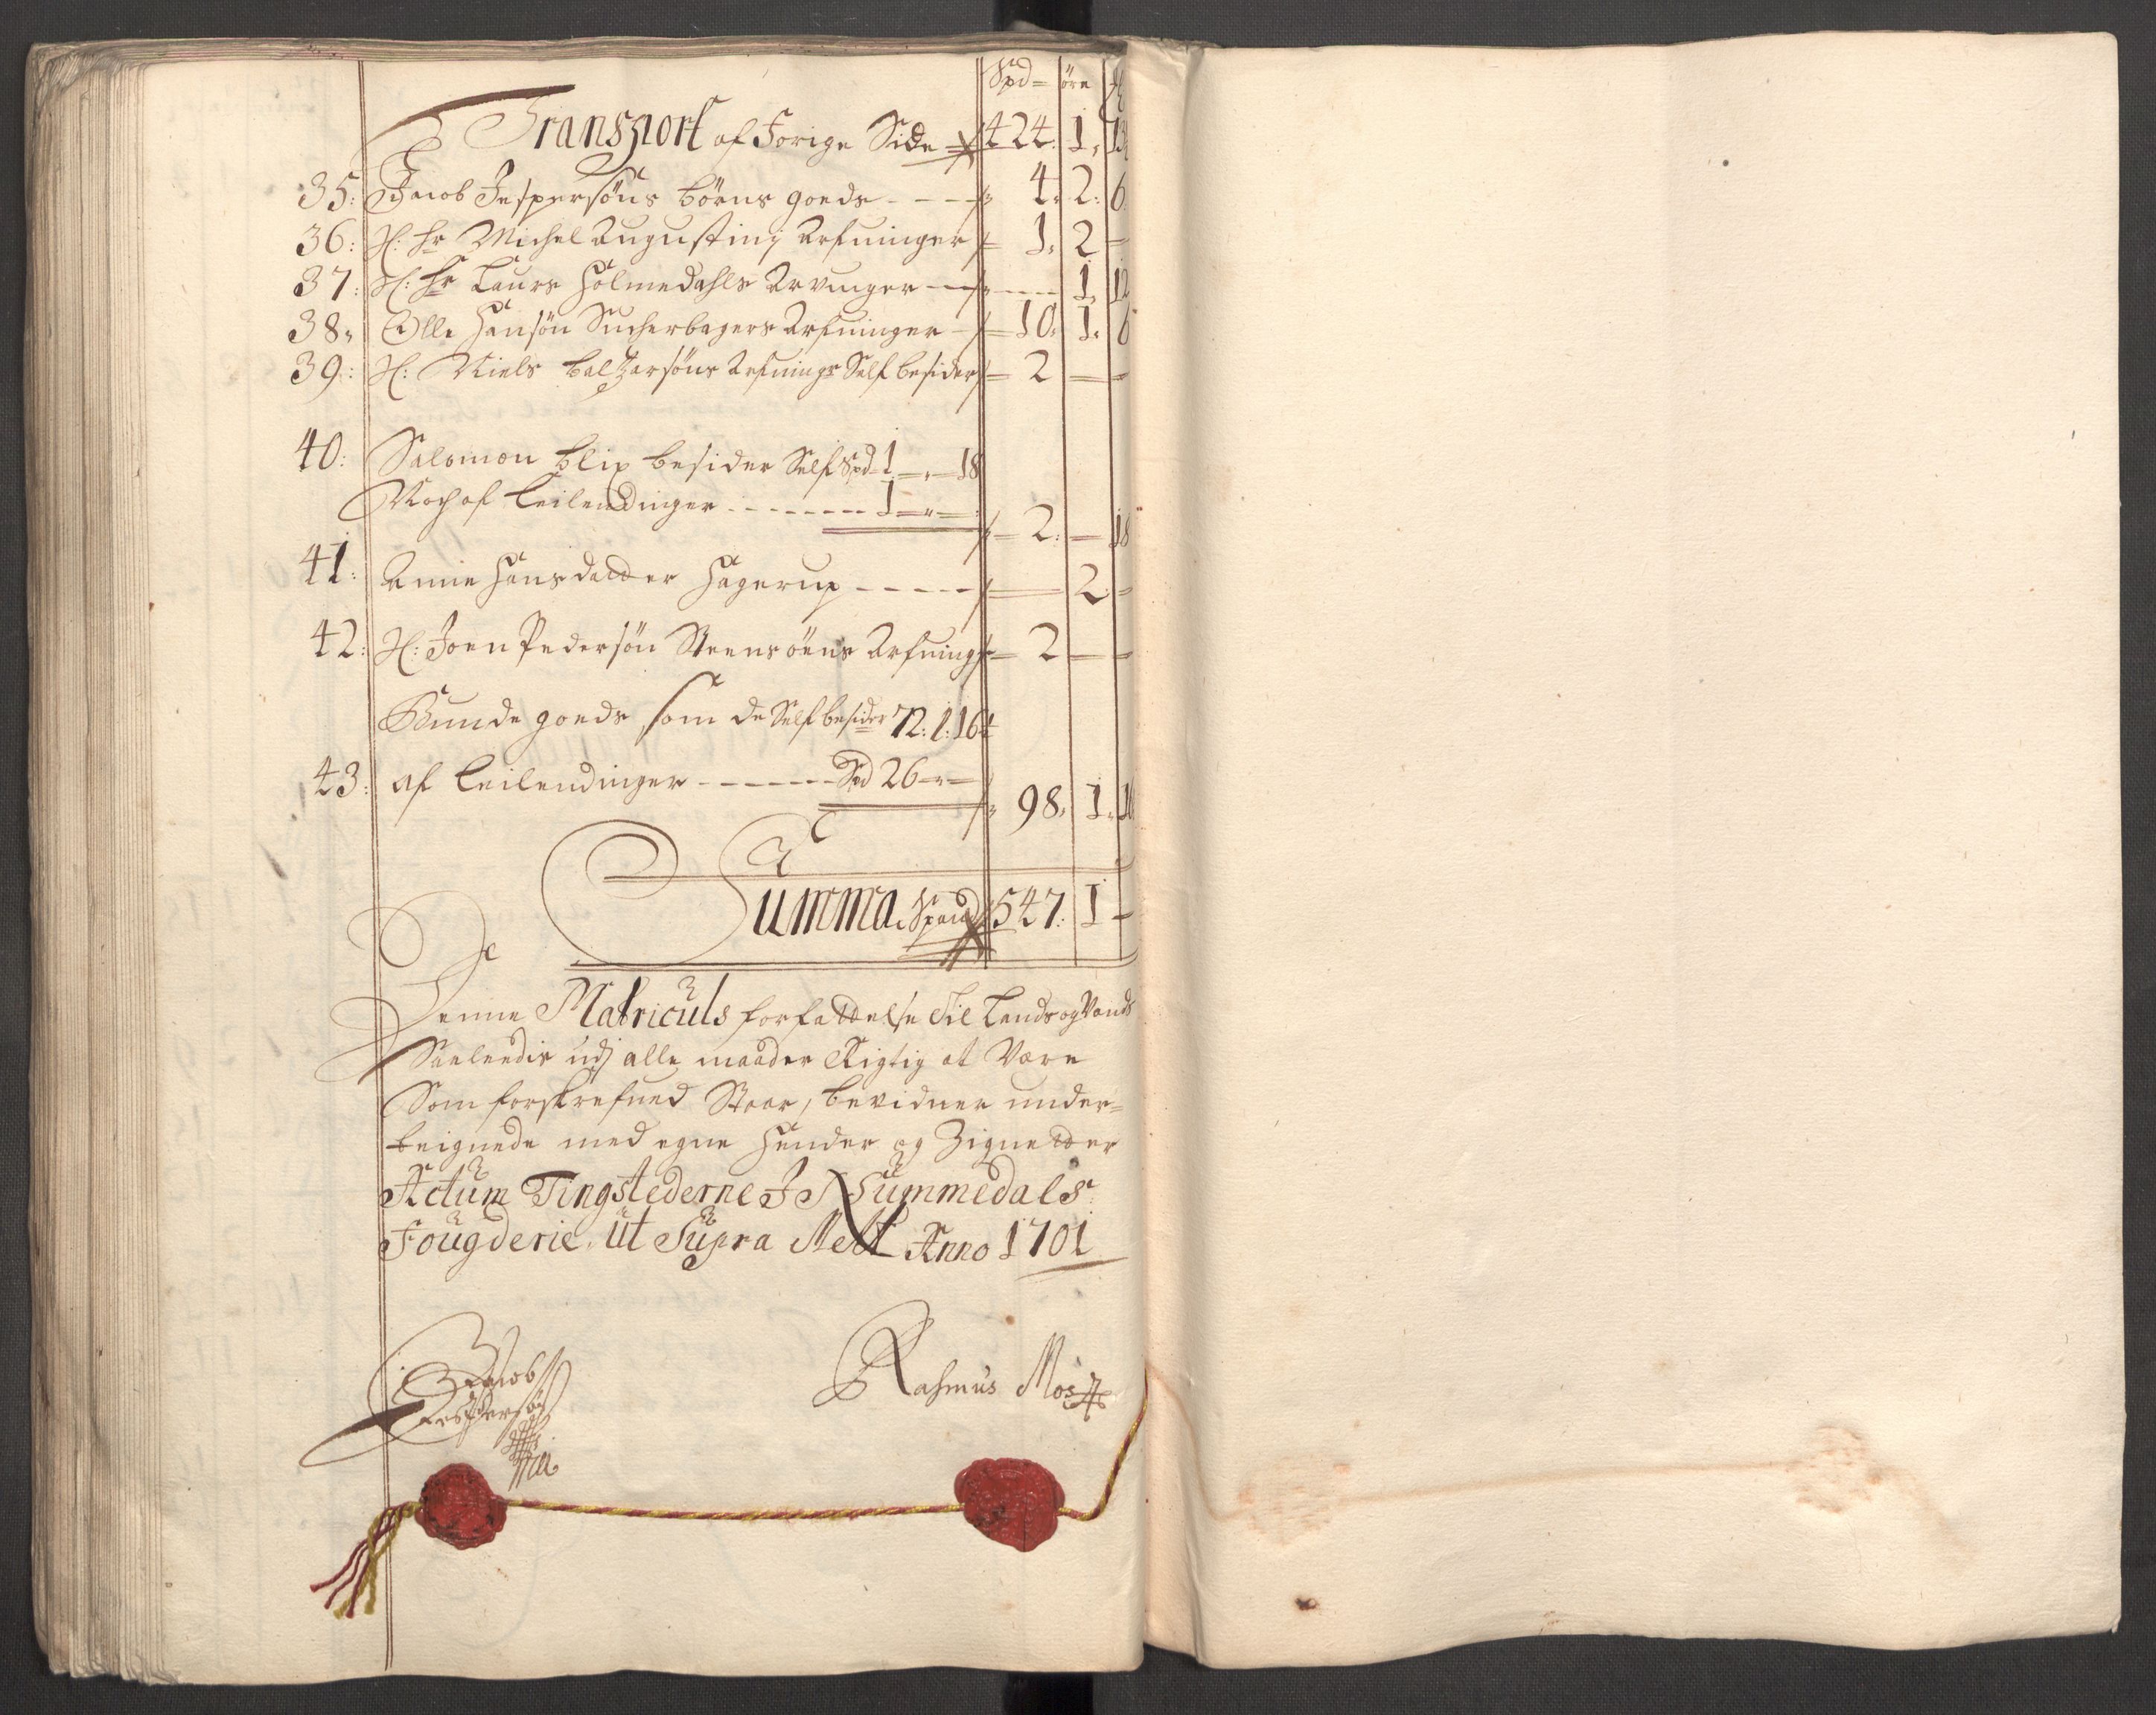 Spd= öre
Transport af Forige Side 424. 1.
35: Jacob Jespersöns börns goeds - - - 4. 2. 6
36: H: hr Michel Augustinj Arfuinger 1. 2 -
37: H: hr Laurs Holmedahls Arvinger - - - 1. 12
38: Olle Hansön Sucherbagers Arfuinger - 10. 1. 6
39: H: Niels baltzersöns Arfuingr Self besider 2 - -
40: Salomon blix besider Self Spd 1 - - 18
Noch af Leilendinger - - - - - 1 - -
2. - 18
41: Anne Hansdatter Hagerup - - - - - 2 -
42: H: Joen Pedersön Arfuingr 2 - -
Bunde goeds som de Self besider 72. 1. 16
43: af Leilendinger - - - - - Spd 26 - -
98. 1.
Summa Spand 547. 1 -
Denne Matriculs forfattelse Til Lands og Vands
Saaleedis udj alle maader Rigtig at Være
Som forskrefued Staar, bevidner under=
teignede med egne Hender og Zignetter
Actum Tingstederne I Nummedals
Fougderie. Ut Supra Anno 1701
Jacob Jespersön
Rasmus